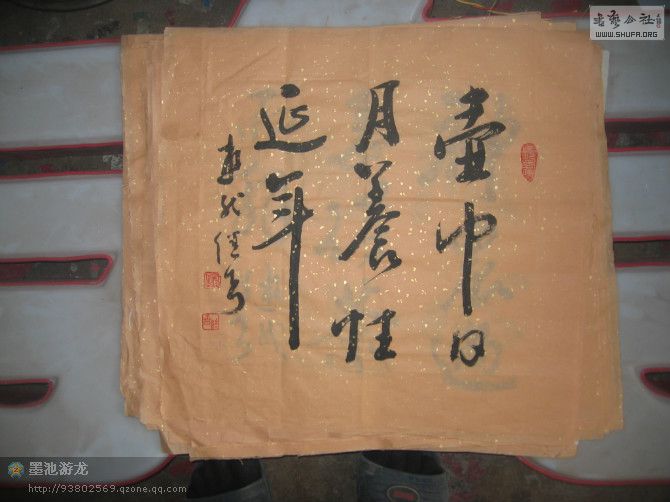 壶中日
月养性
延年
书艺公社
WWW.SHUFA.ORG
墨池游龙
http://93802569.qzone.qq.com